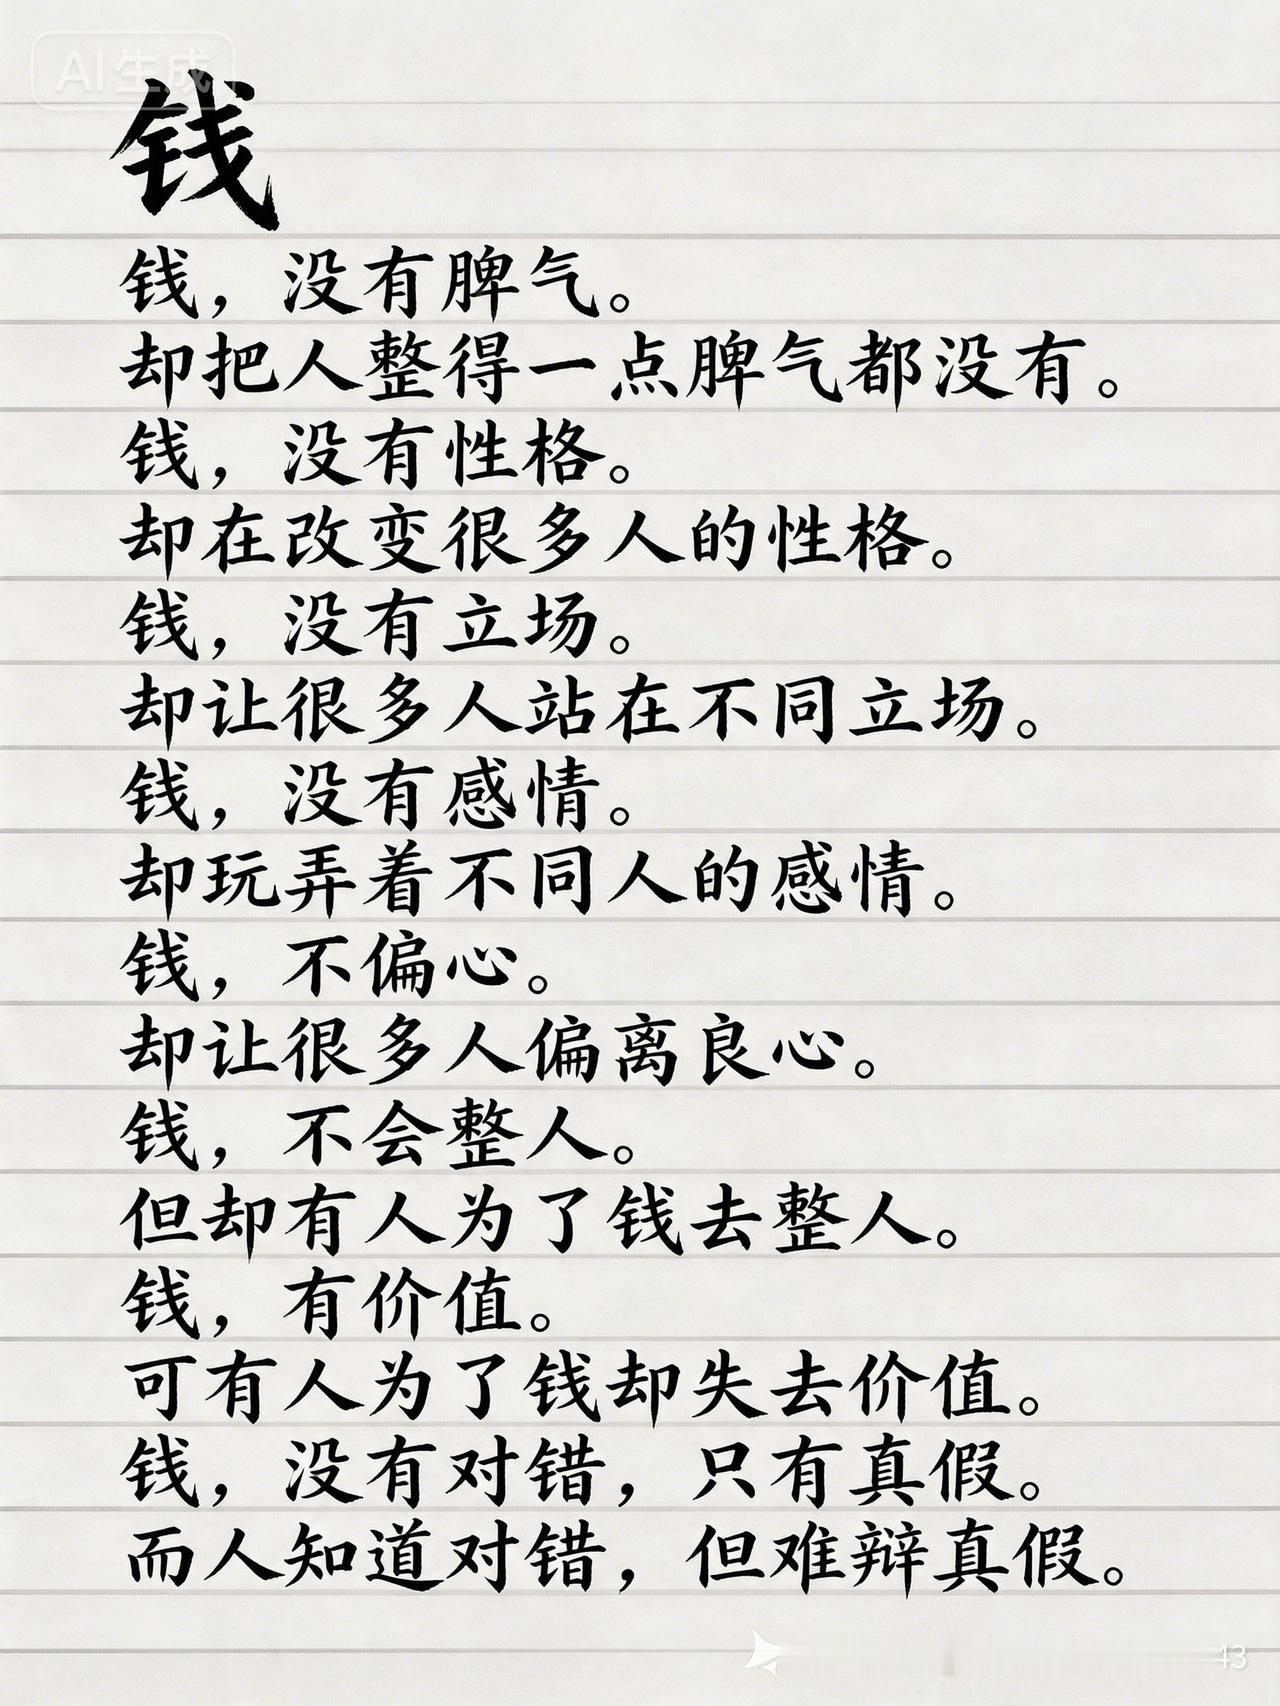 AI生成
钱
钱，没有脾气。
却把人整得一点脾气都没有。
钱，没有性格。
却在改变很多人的性格。
钱，没有立场。
却让很多人站在不同立场。
钱，没有感情。
却玩弄着不同人的感情。
钱，不偏心。
却让很多人偏离良心。
钱，不会整人。
但却有人为了钱去整人。
钱，有价值。
可有人为了钱却失去价值。
钱，没有对错，只有真假。
而人知道对错，但难辩真假。